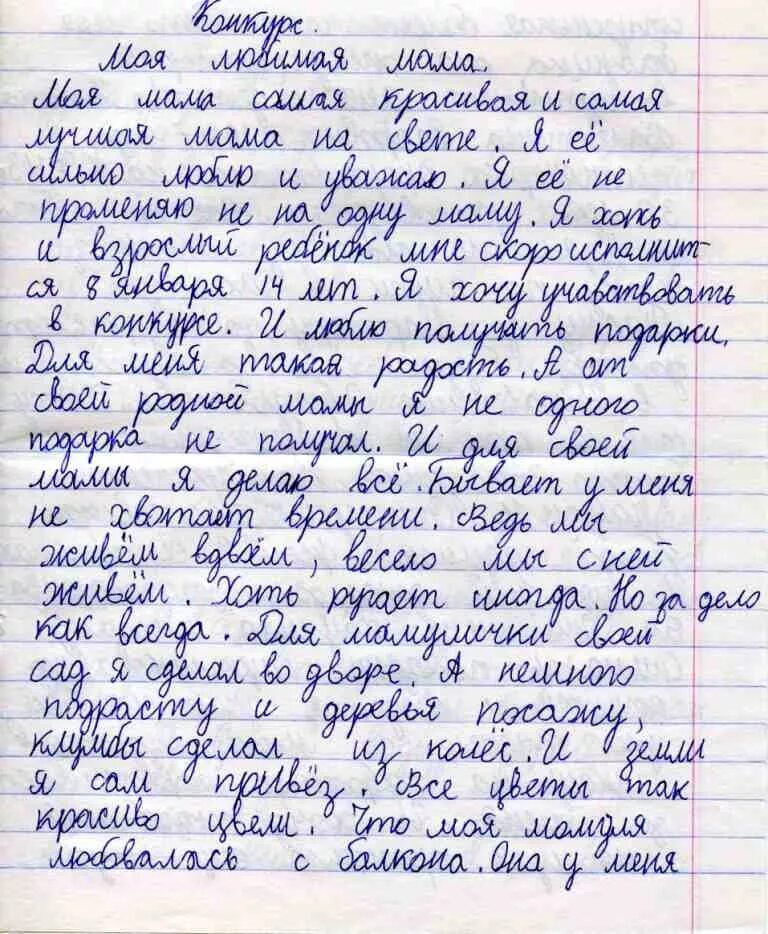 Конкурс.
Моя любимая мама.
Моя мама самая красивая и самая
лучшая мама на свете. Я её
сильно люблю и уважаю. Я её не
променяю не на одну маму. Я хоть
и взрослый ребёнок мне скоро исполнит-
ся 8 января 14 лет. Я хочу учавствовать
в конкурсе. И люблю получать подарки.
Для меня такая радость. А от
своей родной мамы я не одного
подарка не получал. И для своей
мамы я делаю всё. Бывает у меня
не хватает времени. Ведь мы
живём вдвоём, весело мы с ней
живём. Хоть ругает иногда. Но за дело
как всегда. Для мамулички своей
сад я сделал во дворе. А немного
подрасту и деревья посажу,
клумбы сделал из колёс. И земли
я сам привёз. Все цветы так
красиво цвели. Что моя мамуля
любовалась с балкона. Она у меня